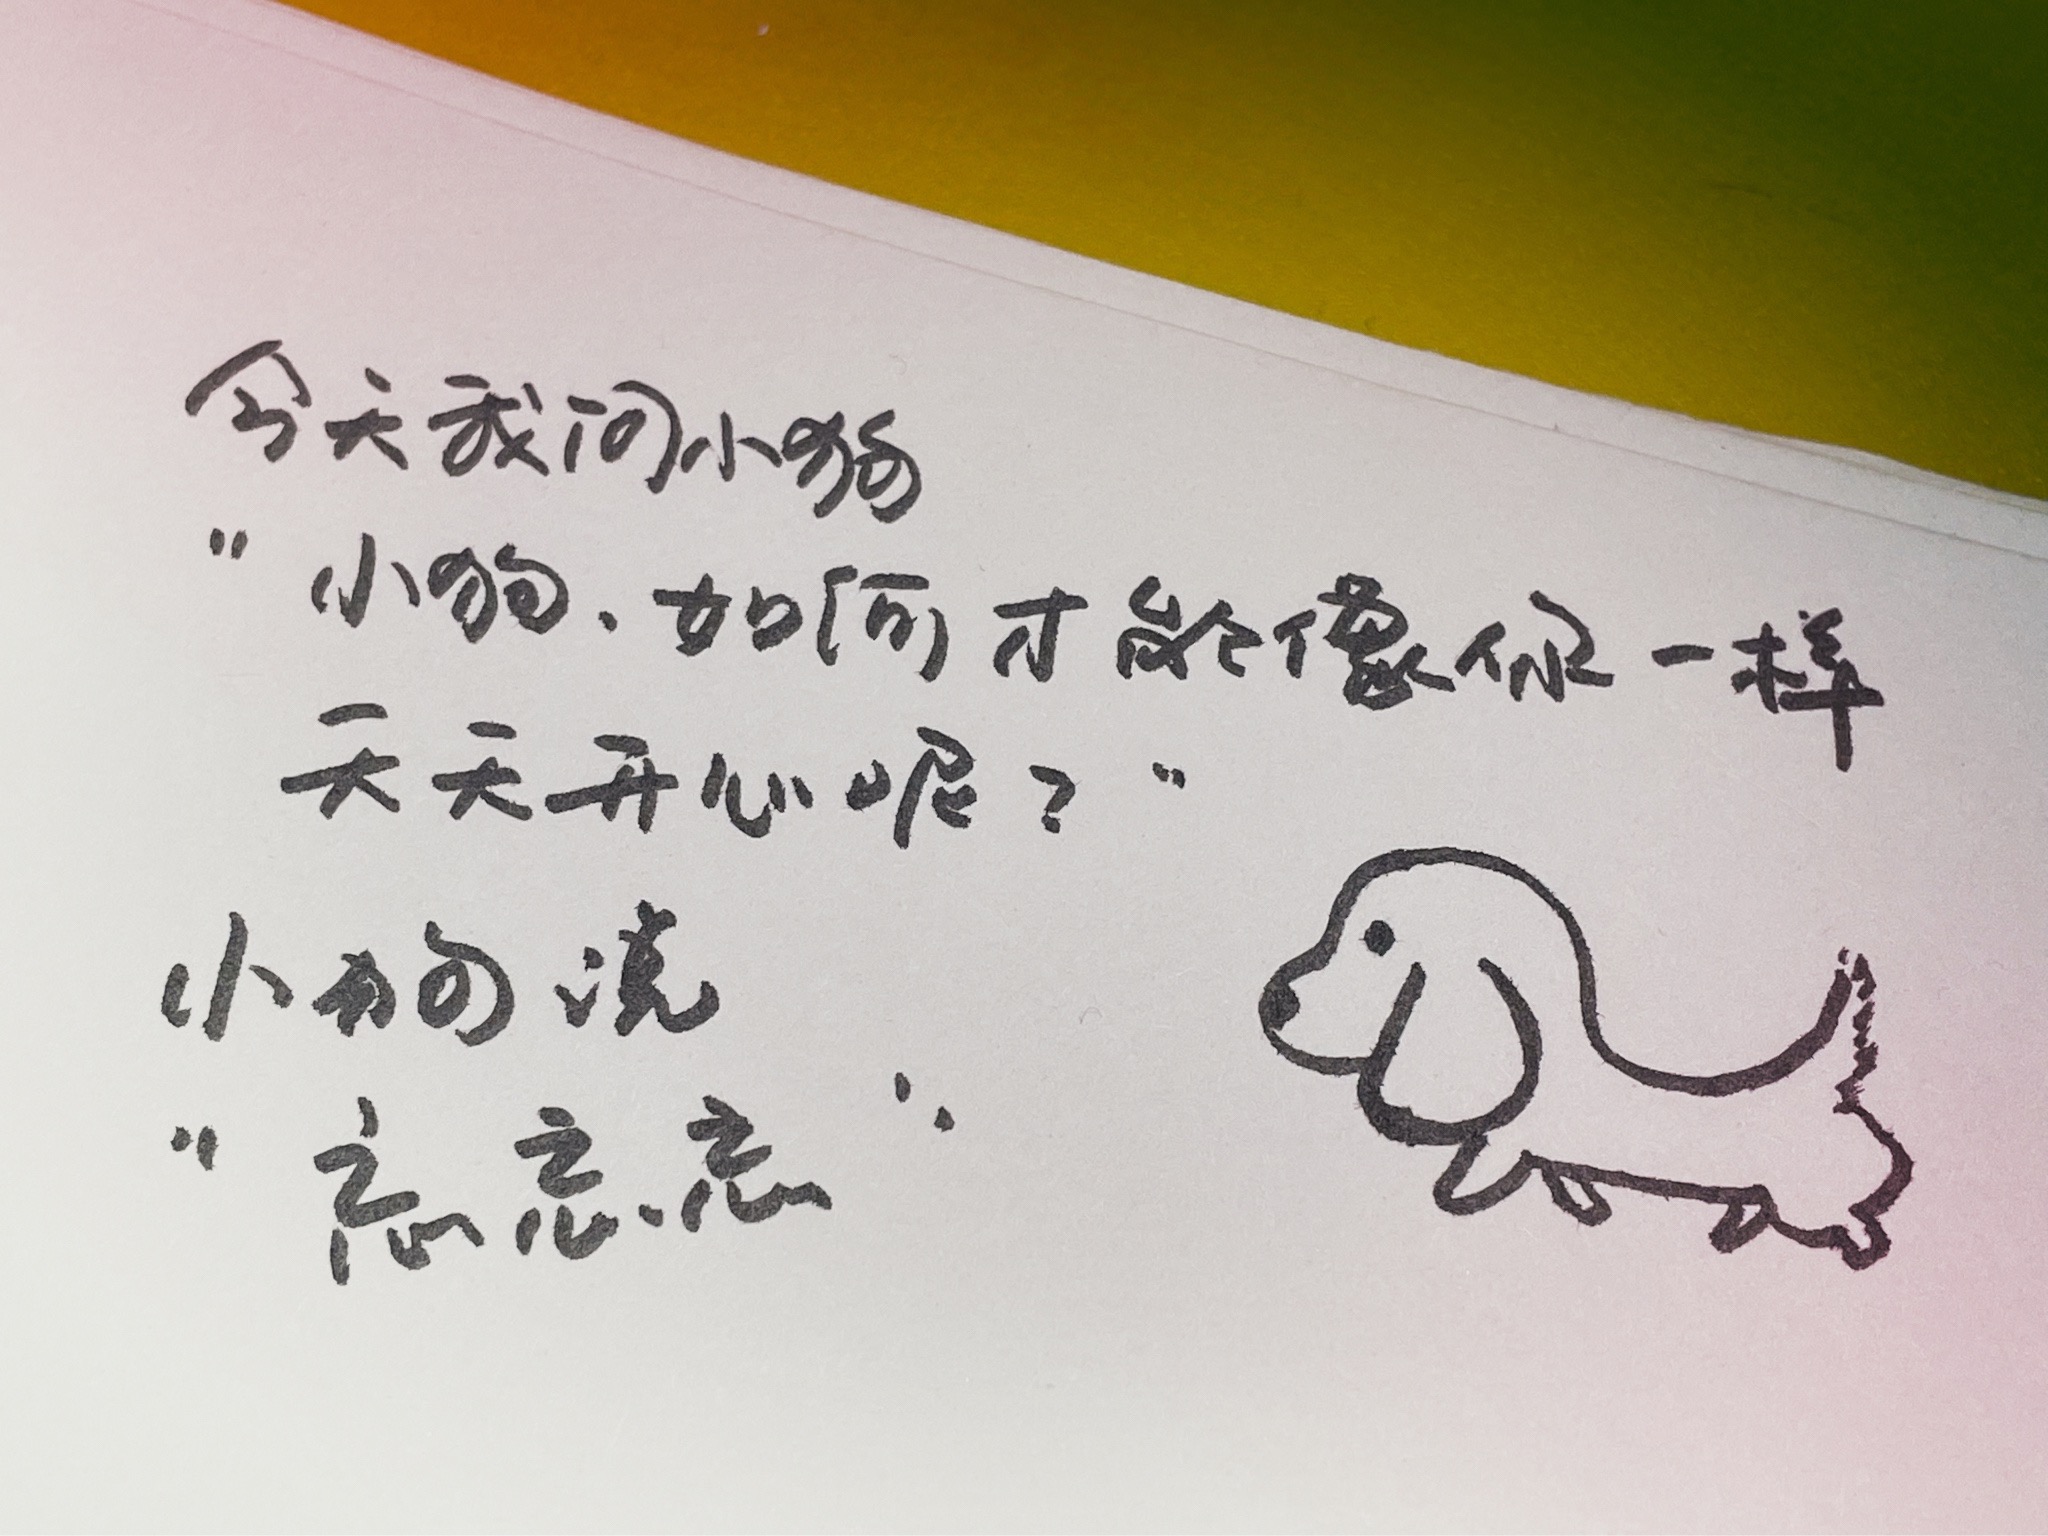 今天我问小狗
"小狗，如何才能像你一样
天天开心呢？"
小狗说
"忘忘忘"